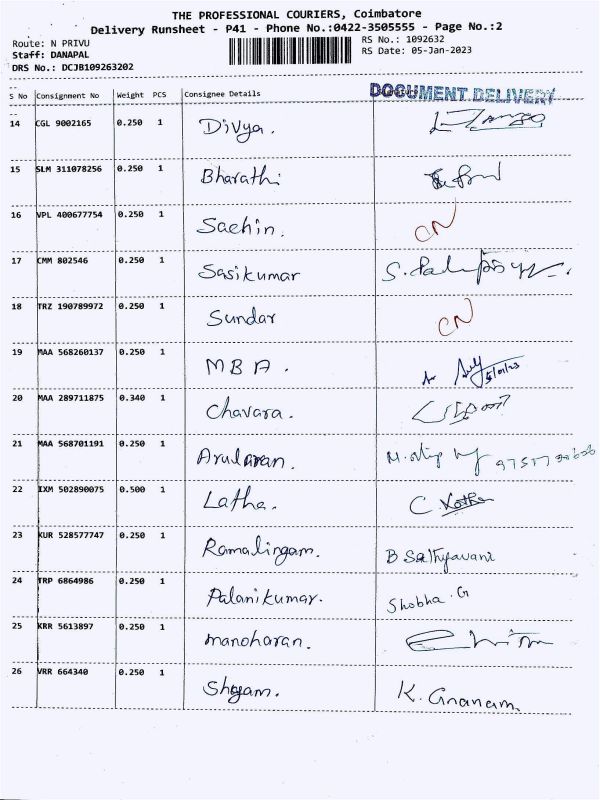 THE PROFESSIONAL COURIERS, Coimbatore
Delivery Runsheet - P41 - Phone No.:0422-3505555 - Page No.:2
Route: N PRIVU
Staff: DANAPAL
DRS No.: DCJB109263202
RS No.: 1092632
RS Date: 05-Jan-2023
DOCUMENT DELIVERY
S No Consignment No Weight PCS Consignee Details
14 CGL 9002165 0.250 1 Divya.
15 SLM 311078256 0.250 1 Bharathi
16 VPL 400677754 0.250 1 Sachin. CN
17 CMM 802546 0.250 1 Sasikumar
18 TRZ 190789972 0.250 1 Sundar CN
19 MAA 568260137 0.250 1 MBA. 5/01/23
20 MAA 289711875 0.340 1 Chavara.
21 MAA 568701191 0.250 1 Arularan.
22 IXM 502890075 0.500 1 Latha. C. Latha
23 KUR 528577747 0.250 1 Ramalingam. B Sathyavani
24 TRP 6864986 0.250 1 Palanikumar. Shobha. G
25 KRR 5613897 0.250 1 manoharan.
26 VRR 664340 0.250 1 Shyam. K. Gnanam.